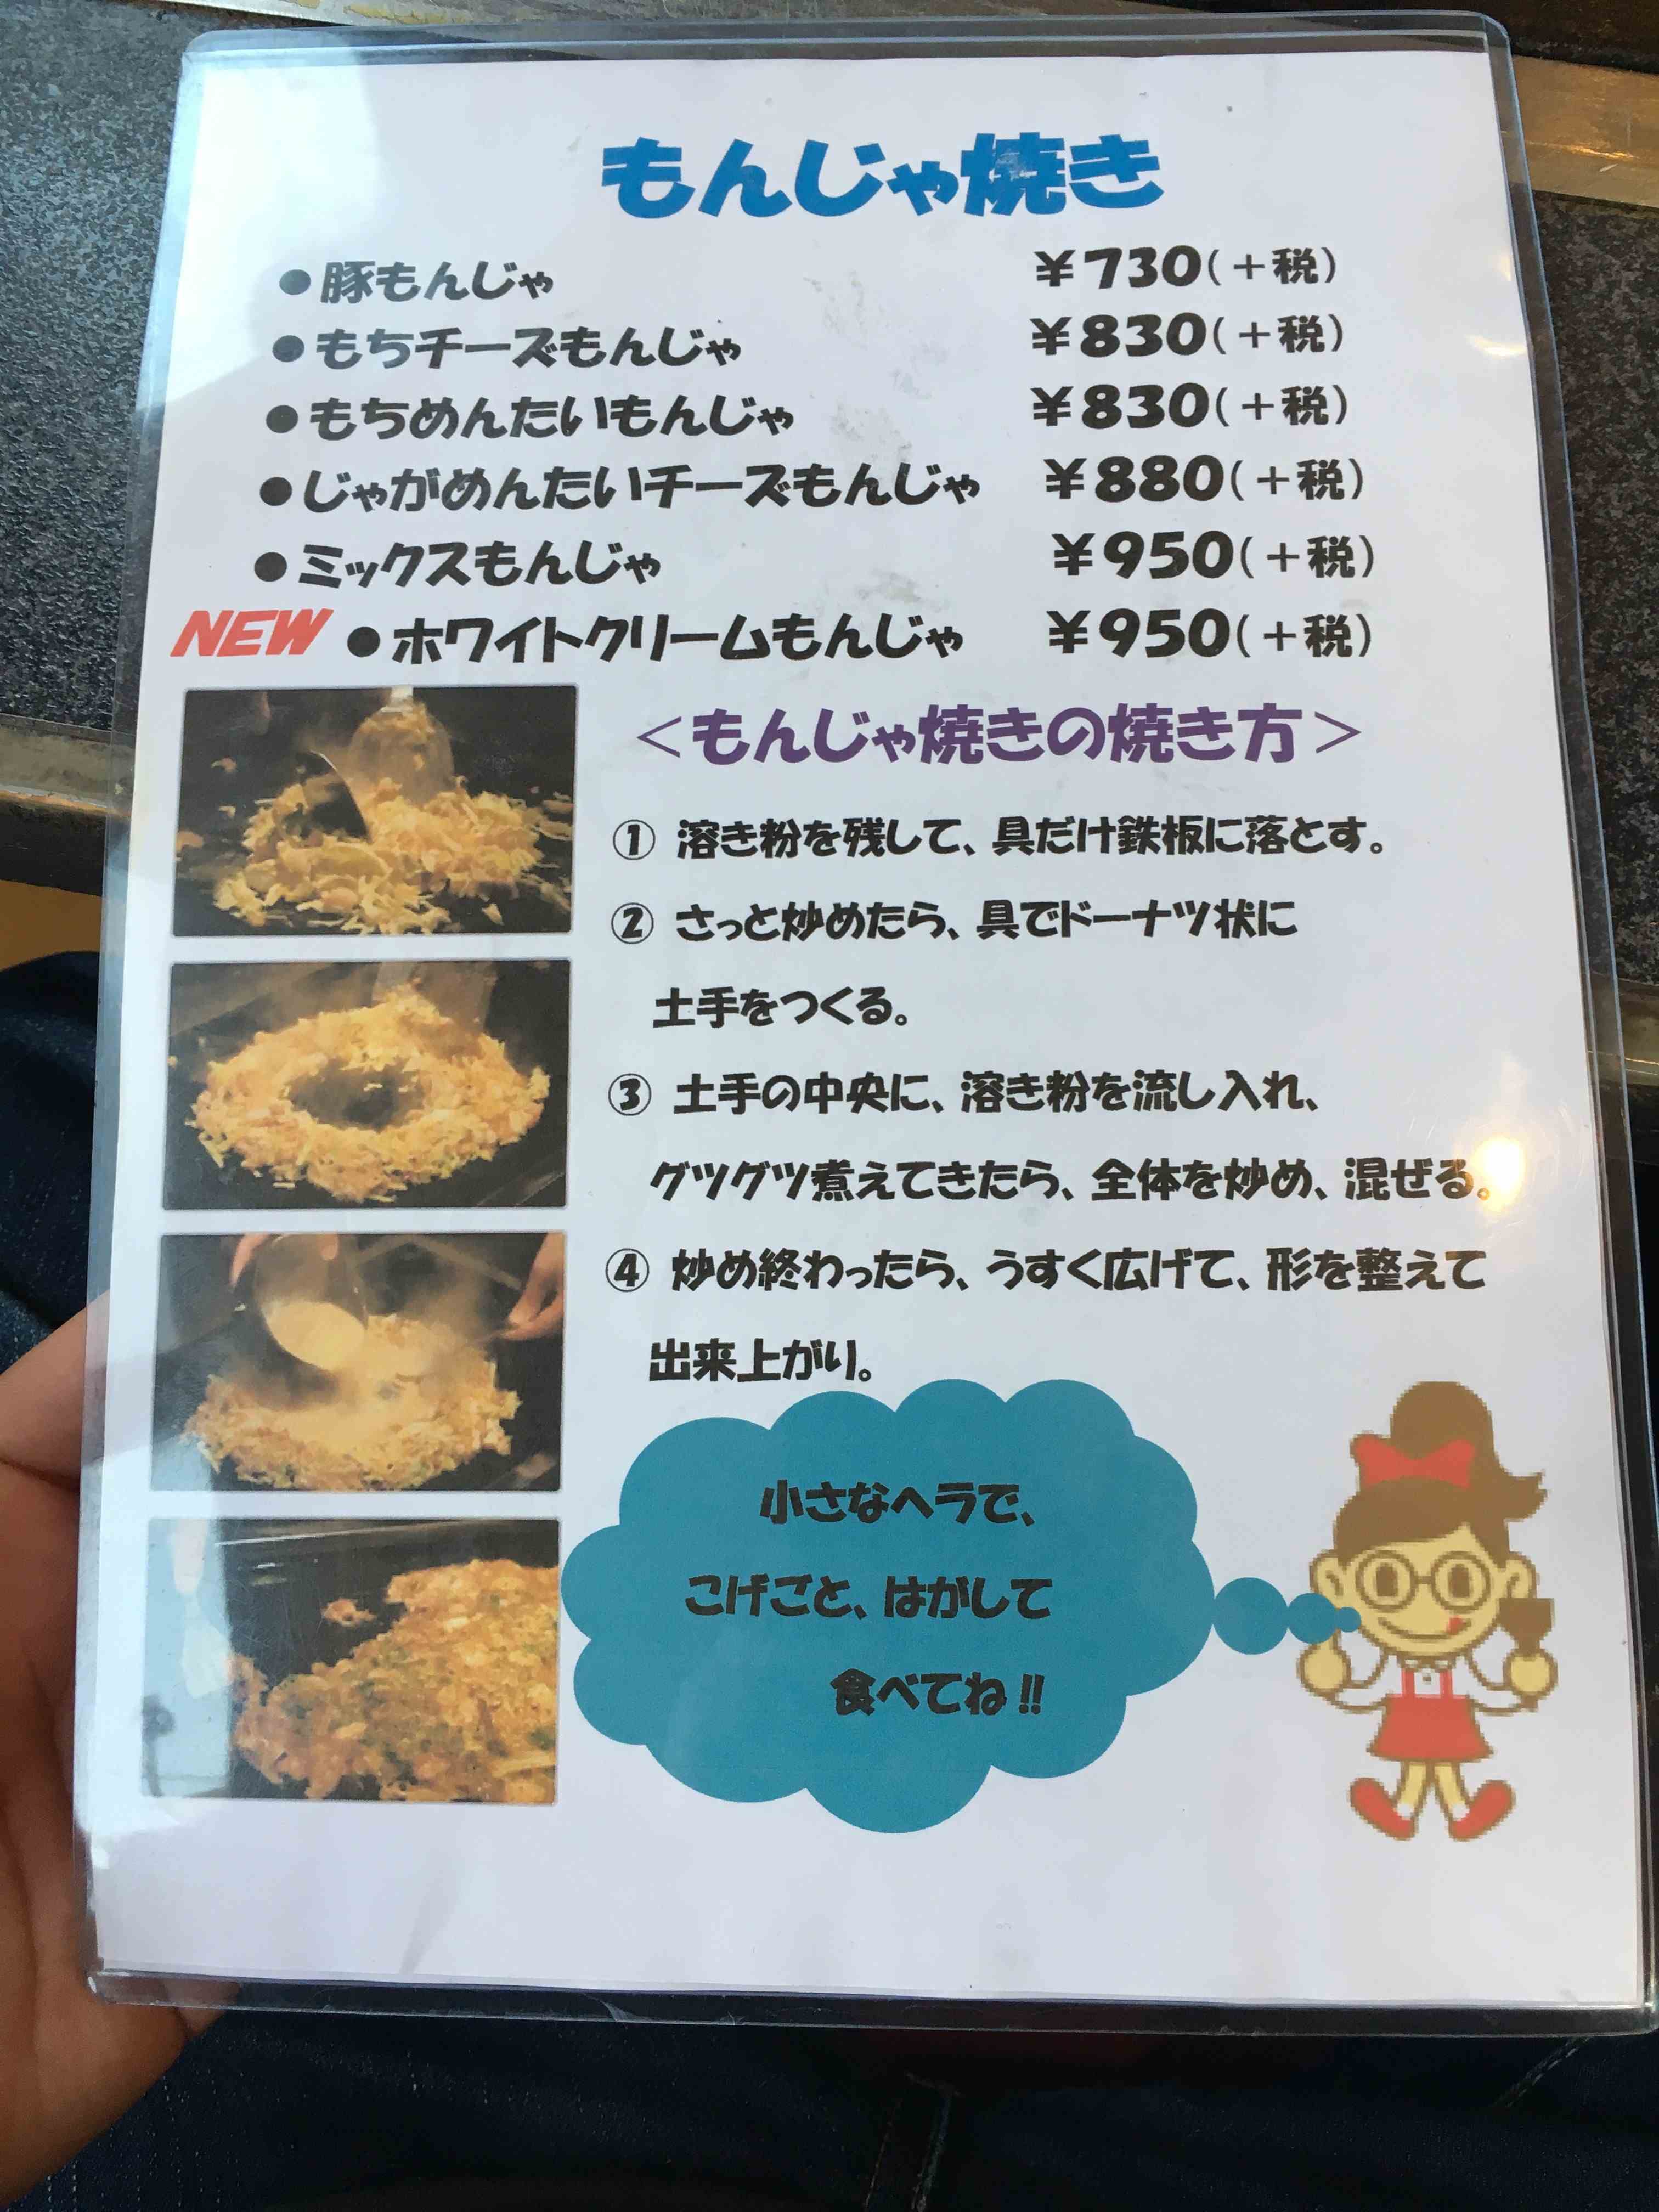 もんじゃ焼き
●豚もんじゃ ¥730(+税)
●もちチーズもんじゃ ¥830(+税)
●もちめんたいもんじゃ ¥830(+税)
●じゃがめんたいチーズもんじゃ ¥880(+税)
●ミックスもんじゃ ¥950(+税)
NEW ●ホワイトクリームもんじゃ ¥950(+税)
<もんじゃ焼きの焼き方>
① 溶き粉を残して、具だけ鉄板に落とす。
② さっと炒めたら、具でドーナツ状に
土手をつくる。
③ 土手の中央に、溶き粉を流し入れ、
グツグツ煮えてきたら、全体を炒め、混ぜる。
④ 炒め終わったら、うすく広げて、形を整えて
出来上がり。
小さなヘラで、
こげごと、はがして
食べてね!!